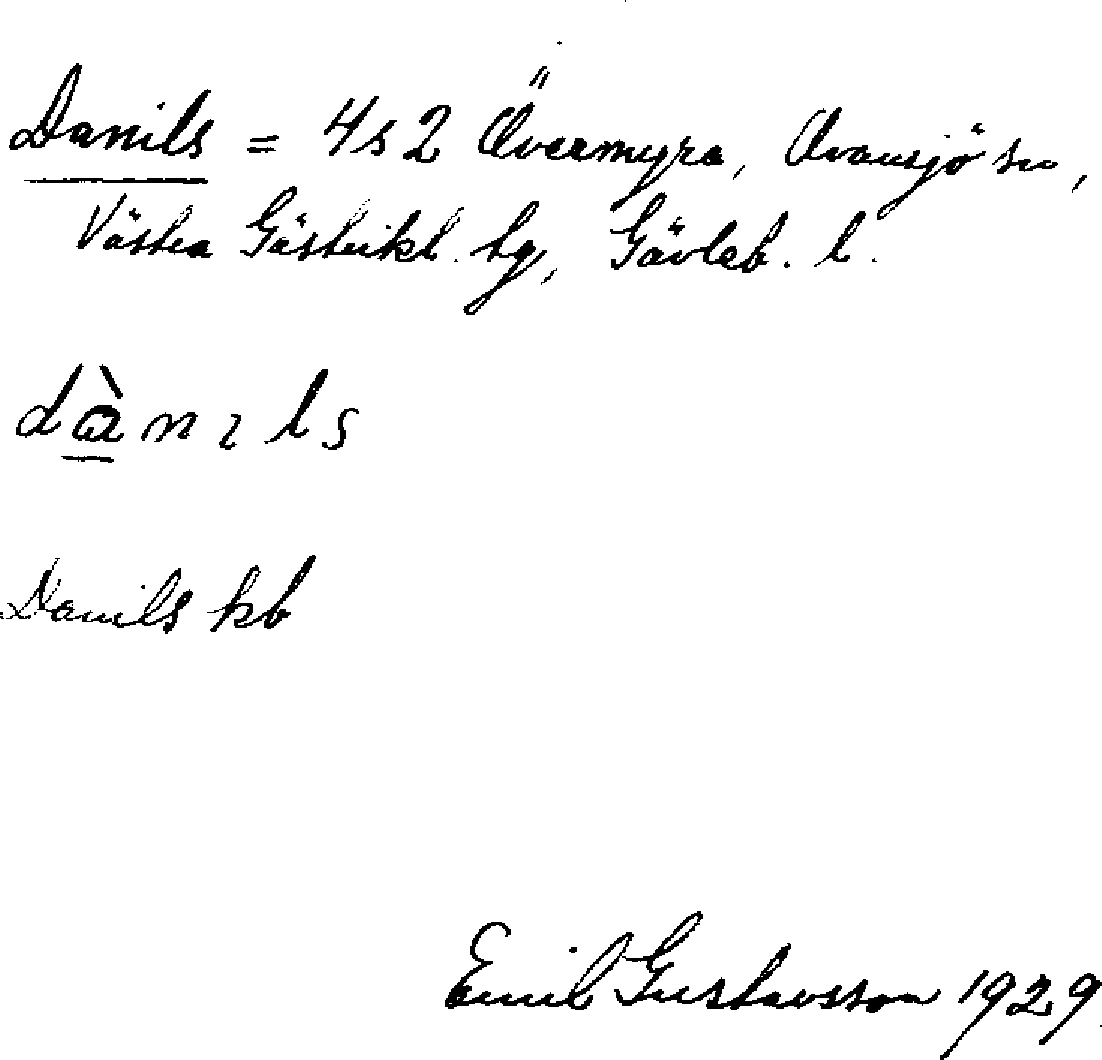 Danils = 4s2 Övermyra, Ovansjö sn,
Västra Gästrikl. tg, Gävleb. l.
dànıls
Danils kb
Emil Gustavsson 1929